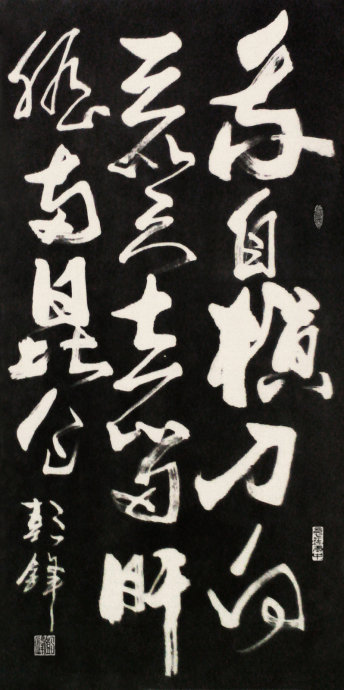 我自横刀向
天笑去留肝
胆两昆仑
彭锋